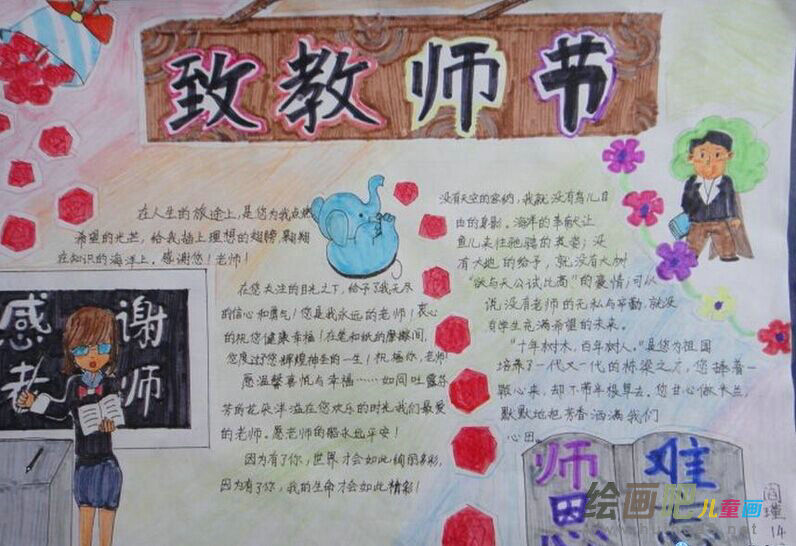 致教师节
在人生的旅途上，是您为我点燃
希望的光芒，给我插上理想的翅膀，翱翔
在知识的海洋上。感谢您！老师！
在您关注的目光之下，给予了我无尽
的信心和勇气！您是我永远的老师！衷心
的祝您健康幸福！在笔和纸的摩擦间，
您度过了您辉煌神圣的一生！祝福你，老师！
愿温馨喜悦与幸福……如同吐露芬
芳的花朵洋溢在您欢乐的时光我们最爱
的老师。愿老师的福永远平安！
因为有了你，世界才会如此绚丽多彩，
因为有了你，我的生命才会如此精彩！
没有天空的容纳，我就没有鸟儿自
由的身影。海洋的奉献让
鱼儿来往驰骋的英姿；没
有大地的给予，就没有大树
"欲与天公试比高"的豪情；可以
说没有老师的无私与辛勤，就没
有学生充满希望的未来。
"十年树木，百年树人。"是您为祖国
培养了一代又一代的栋梁之才，您捧着一
颗心来，却不带半根草去。您甘心做米兰，
默默地把芳香洒满我们
心田。
感谢
老师
师恩
难忘
绘画吧儿童画
14